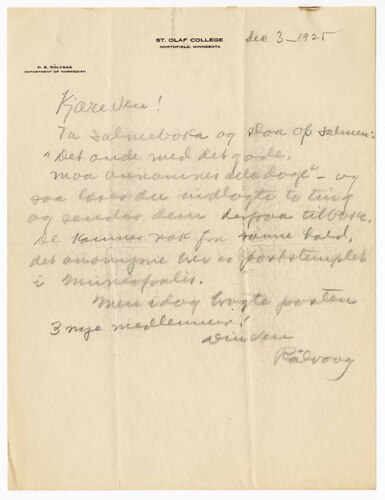 ST. OLAF COLLEGE
NORTHFIELD, MINNESOTA
O. E. ROLVAAG
DEPARTMENT OF NORWEGIAN
Dec 3-1925
Kjære Ven!
Ta Salmeboka og slaa op salmen:
"Det onde med det gode,
maa - og
saa læser du indlagte to ting
og sender dem derpaa tilbake.
De kommer nok fra samme hold,
det anonyme brev er poststemplet
i Minneapolis.
Men idag bragte posten
3 nye medlemmer!
Din Ven